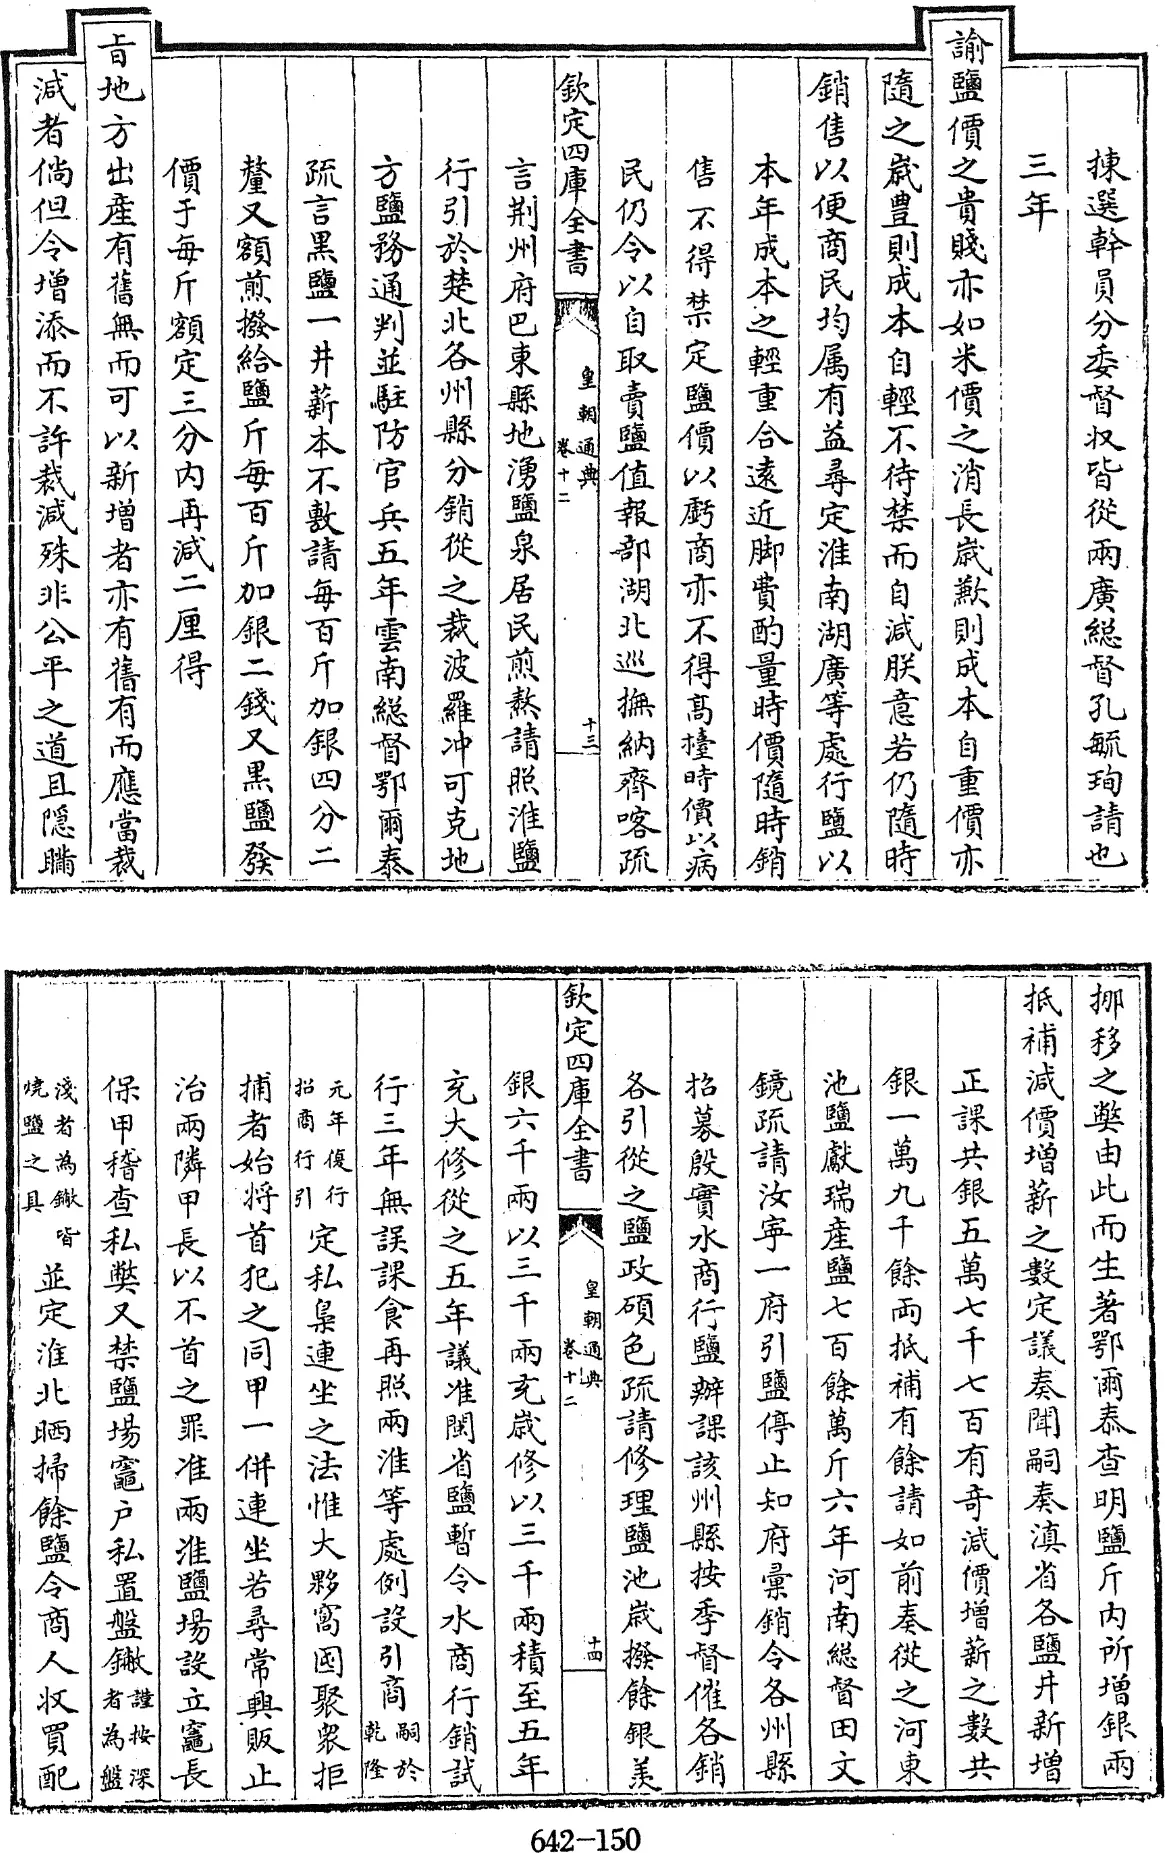 揀選幹員分委督収皆從兩廣総督孔毓珣請也
三年
諭鹽價之貴賤亦如米價之消長歳歉則成本自重價亦
隨之歳豊則成本自輕不待禁而自減朕意若仍隨時
銷售以便商民均属有益尋定淮南湖廣等處行鹽以
本年成本之輕重合遠近脚費酌量時價隨時銷
售不得禁定鹽價以虧商亦不得髙擡時價以病
民仍令以自取賣鹽值報部湖北巡撫納齊喀疏
欽定四庫全書
皇朝通典
卷十二
十三
言荆州府巴東縣地湧鹽泉居民煎熬請照淮鹽
行引於楚北各州縣分銷從之裁波羅冲可克地
方鹽務通判並駐防官兵五年雲南総督鄂爾泰
疏言黒鹽一井薪本不敷請每百斤加銀四分二
釐又額煎撥給鹽斤每百斤加銀二錢又黒鹽發
價于每斤額定三分内再減二厘得
㫖地方出産有舊無而可以新增者亦有舊有而應當裁
減者倘但令增添而不許裁減殊非公平之道且隠瞞
挪移之獘由此而生著鄂爾泰查明鹽斤内所增銀兩
抵補減價增薪之數定議奏聞嗣奏滇省各鹽井新增
正課共銀五萬七千七百有竒減價增薪之數共
銀一萬九千餘両抵補有餘請如前奏從之河東
池鹽獻瑞産鹽七百餘萬斤六年河南総督田文
鏡疏請汝寧一府引鹽停止知府彚銷令各州縣
招募殷實水商行鹽辦課該州縣按季督催各銷
各引從之鹽政碩色疏請修理鹽池歳撥餘銀羡
欽定四庫全書
皇朝通典
卷十二
十四
銀六千兩以三千兩充歳修以三千兩積至五年
充大修從之五年議准閩省鹽暫令水商行銷試
行三年無誤課食再照兩淮等處例設引商嗣於
乾隆
元年復行
招商行引定私梟連坐之法惟大夥窩囤聚衆拒
捕者始將首犯之同甲一併連坐若尋常興販止
治兩隣甲長以不首之罪准兩淮鹽場設立竈長
保甲稽查私獘又禁鹽場竈户私置盤䥕謹按深
者為盤
淺者為䥕皆
燒鹽之具並定淮北晒掃餘鹽令商人収買配
642-150